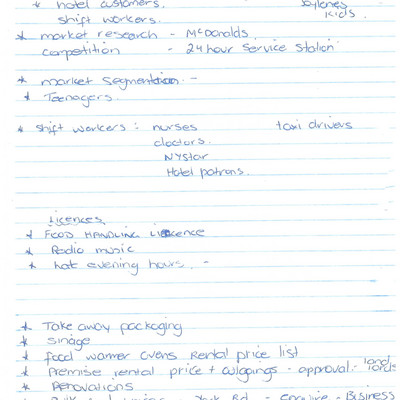 * hotel customers.
Kids
shift workers.
* market research - McDonalds.
competition - 24 hour service station
* market segmentation -
* Teenagers.
* shift workers : nurses taxi drivers
doctors.
NYstar
Hotel patrons.
Licences
* FOOD HANDLING LICENCE
* Radio music
* hot evening hours. -
* Take away packaging
* sinage
* food warmer ovens Rental price list
* Premise rental price + outgoings - approval - land lords
* Renovations
Rd - enquire - Business